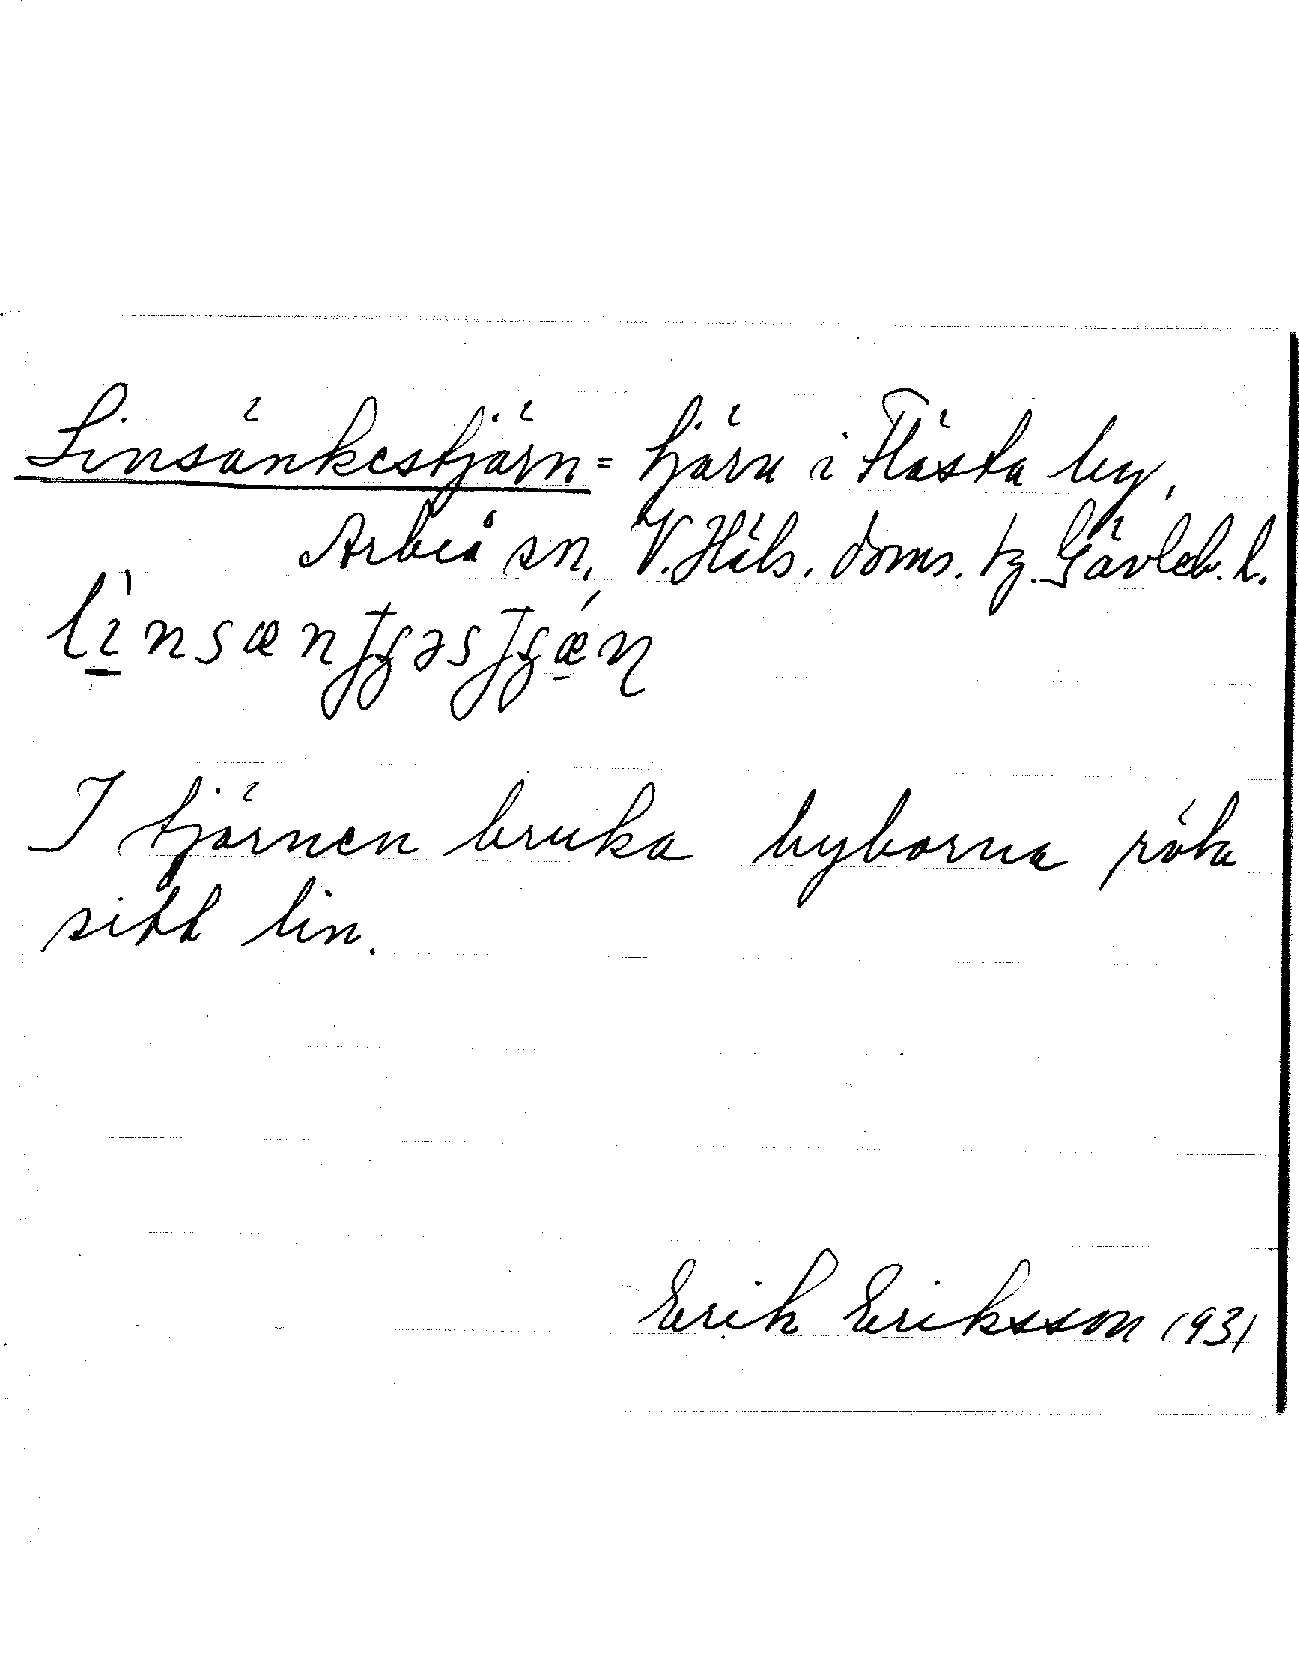 Linsänkestjärn = tjärn i Flästa by,
Arbrå sn, V. Häls. doms. tg. Gävleb. l.
lìnsænʈʂəsʈʂǽɳ
I tjärnen bruka byborna röta
sitt lin.
Erik Eriksson 1931